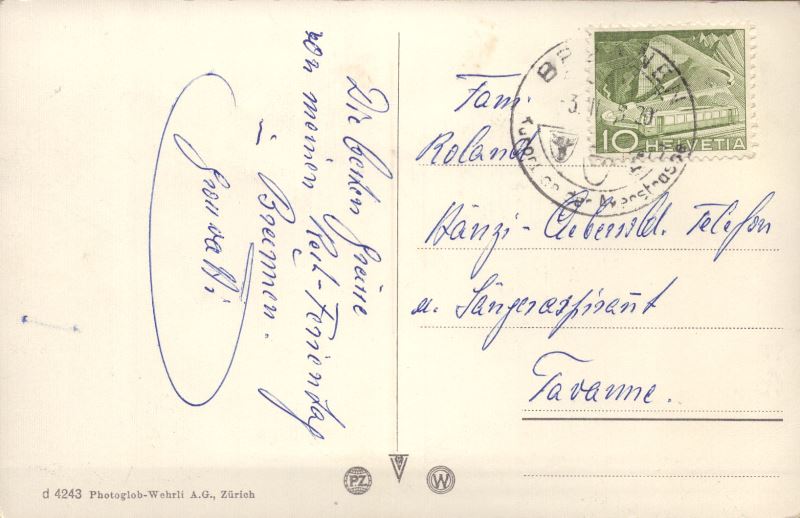 Die besten Grüsse
von meinen Rest-Ferientag
i. Brunnen.
Grosvatti
Fam.
Roland
Hänzi-Aebersold. Telefon
u. Sängeraspirant
Tavanne.
BRUNNEN
10 HELVETIA
d 4243 Photoglob-Wehrli A.G., Zürich
PZ
W